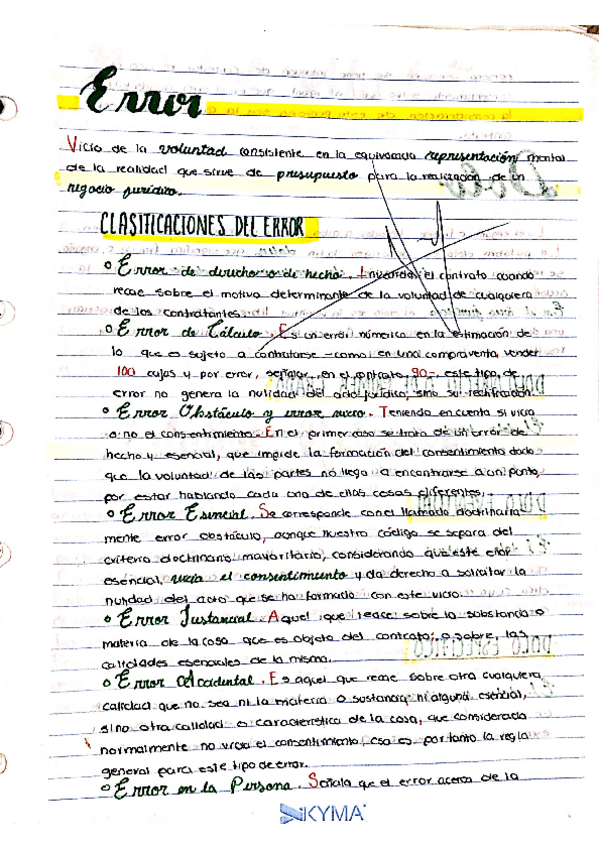 Error
Vicio de la voluntad consistente en la equivocada representación mental
de la realidad que sirve de presupuesto para la realización de un
negocio jurídico.
CLASIFICACIONES DEL ERROR
Error de derecho o de hecho. Invalida el contrato cuando
recae sobre el motivo determinante de la voluntad de cualquiera
de los contratantes.
Error de Cálculo. Es un error númerico en la estimación de
lo que es sujeto a contratarse -como en una compraventa, vender
100 cajas y por error, señalar en el contrato 90-, este tipo de
error no genera la nulidad del acto jurídico, sino su rectificación.
Error Obstáculo y error vicio. Teniendo en cuenta si vicia
o no el consentimiento. En el primer caso se trata de un error de
hecho y esencial, que impide la formación del consentimiento dado
que la voluntad de las partes no llega a encontrarse a un punto,
por estar hablando cada una de ellas cosas diferentes.
Error Esencial. Se corresponde con el llamado doctrinaria-
mente error obstáculo, aunque nuestro código se separa del
criterio doctrinario mayoritario, considerando que este error
esencial, vicia el consentimiento y da derecho a solicitar la
nulidad del acto que se ha formado con este vicio.
Error Sustancial. Aquel que recae sobre la substancia o
materia de la cosa que es objeto del contrato; o sobre, las
calidades esenciales de la misma.
Error Accidental. Es aquel que recae sobre otra cualquiera
calidad que no sea ni la materia o sustancia, ni alguna esencial,
sino otra calidad o característica de la cosa, que considerada
normalmente no vicia el consentimiento, esa es por tanto la regla
general para este tipo de error.
Error en la Persona. Señala que el error acerca de la
KYMA